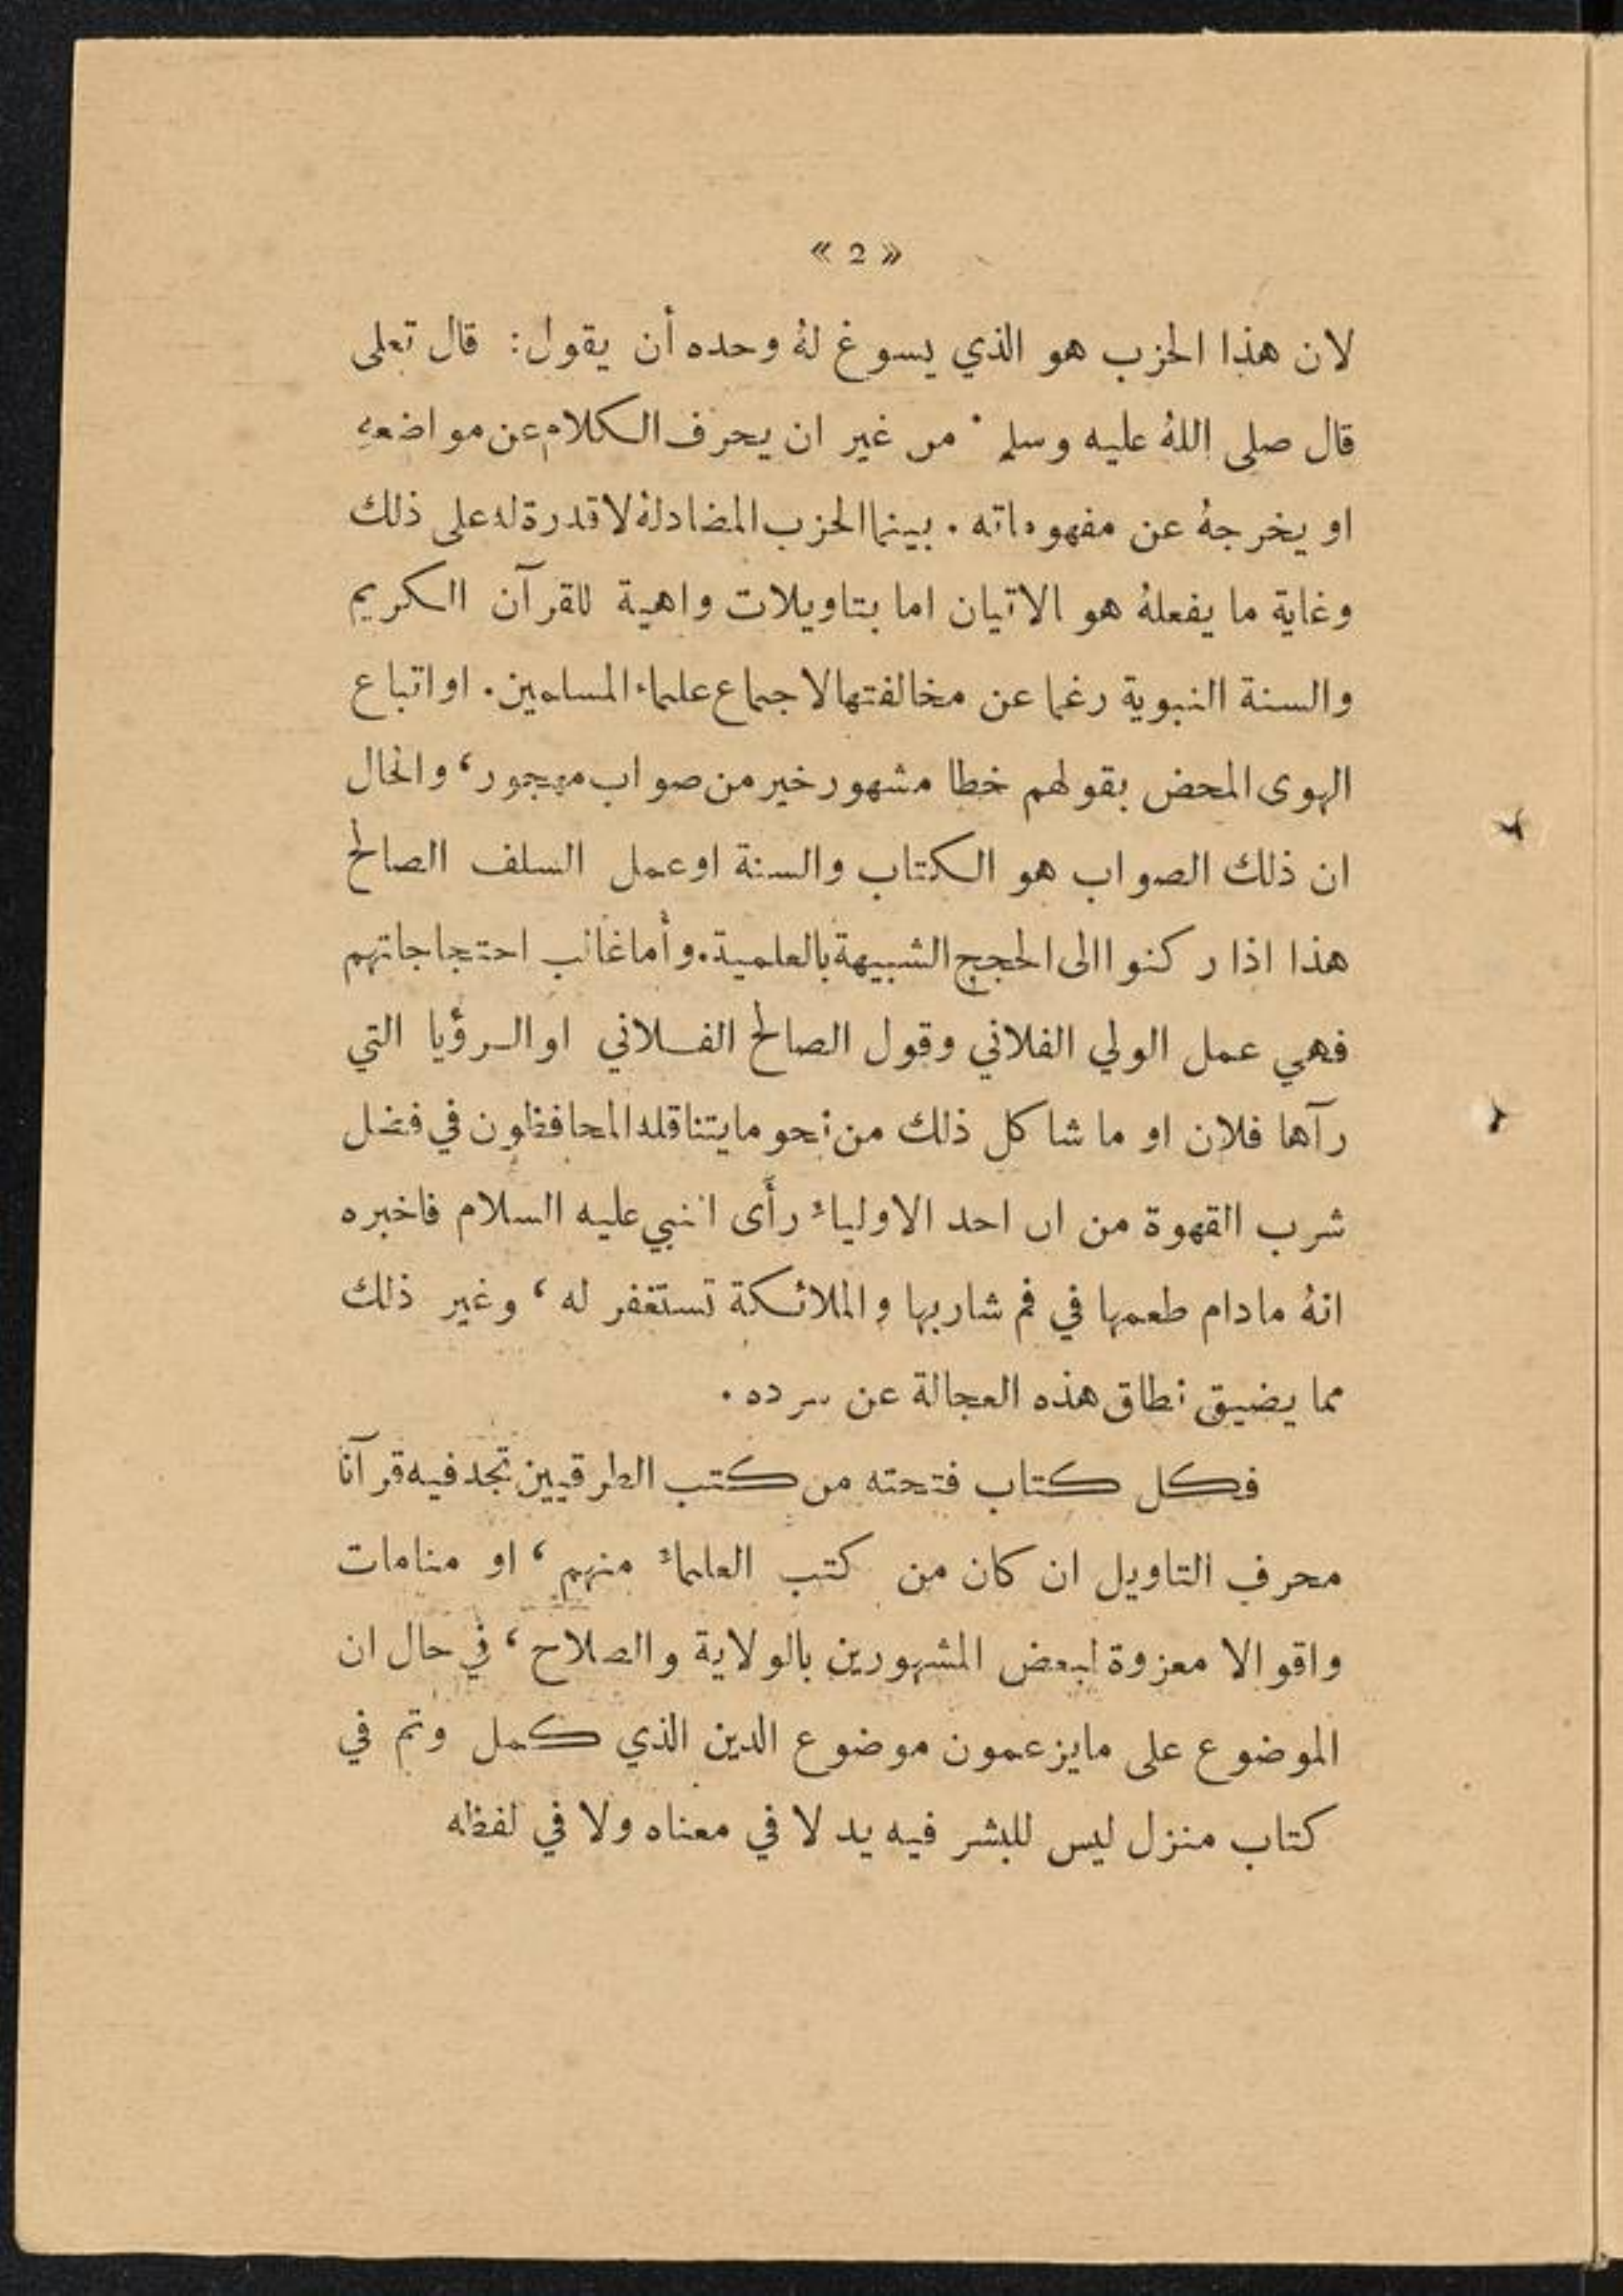 « 2 »
لان هذا الحزب هو الذي يسوغ لهُ وحده أن يقول: قال تعلى
قال صلى اللهُ عليه وسلم ٠ من غير ان يحرف الكلام عن مواضعه
او يخرجهُ عن مفهوماته . بينما الحزب المضاد لهُ لا قدرة له على ذلك
وغاية ما يفعلهُ هو الاتيان اما بتاويلات واهية للقرآن الكريم
والسنة النبوية رغما عن مخالفتها لاجماع علماء المسلمين . او اتباع
الهوى المحض بقولهم خطا مشهور خير من صواب مهجور ، والحال
ان ذلك الصواب هو الكتاب والسنة او عمل السلف الصالح
هذا اذا ركنوا الى الحجج الشبيهة بالعلمية . وأما غالب احتجاجاتهم
فهي عمل الولي الفلاني وقول الصالح الفلاني او الرؤيا التي
رآها فلان او ما شاكل ذلك من نحو ما يتناقله المحافظون في فضل
شرب القهوة من ان احد الاولياء رأى النبي عليه السلام فاخبره
انهُ مادام طعمها في فم شاربها والملائكة تستغفر له ، وغير ذلك
مما يضيق نطاق هذه العجالة عن سرده .
فكل كتاب فتحته من كتب الطرقيين تجد فيه قرآنا
محرف التاويل ان كان من كتب العلماء منهم ، او منامات
واقوالا معزوة لبعض المشهورين بالولاية والصلاح ، في حال ان
الموضوع على مايزعمون موضوع الدين الذي كمل وتم في
كتاب منزل ليس للبشر فيه يد لا في معناه ولا في لفظه